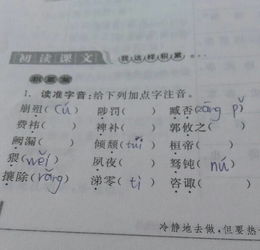 初读课文 我这样积累
积累篇
1. 读准字音:给下列加点字注音。
崩殂(cú) 陟罚( ) 臧否(zāng pǐ)
费祎( ) 裨补( ) 郭攸之( )
阙漏( ) 倾颓( tuí ) 桓帝( )
猥(wěi) 夙夜( ) 驽钝( nú )
攘除(rǎng) 涕零( tì ) 咨诹( )
冷静地去做,但要热